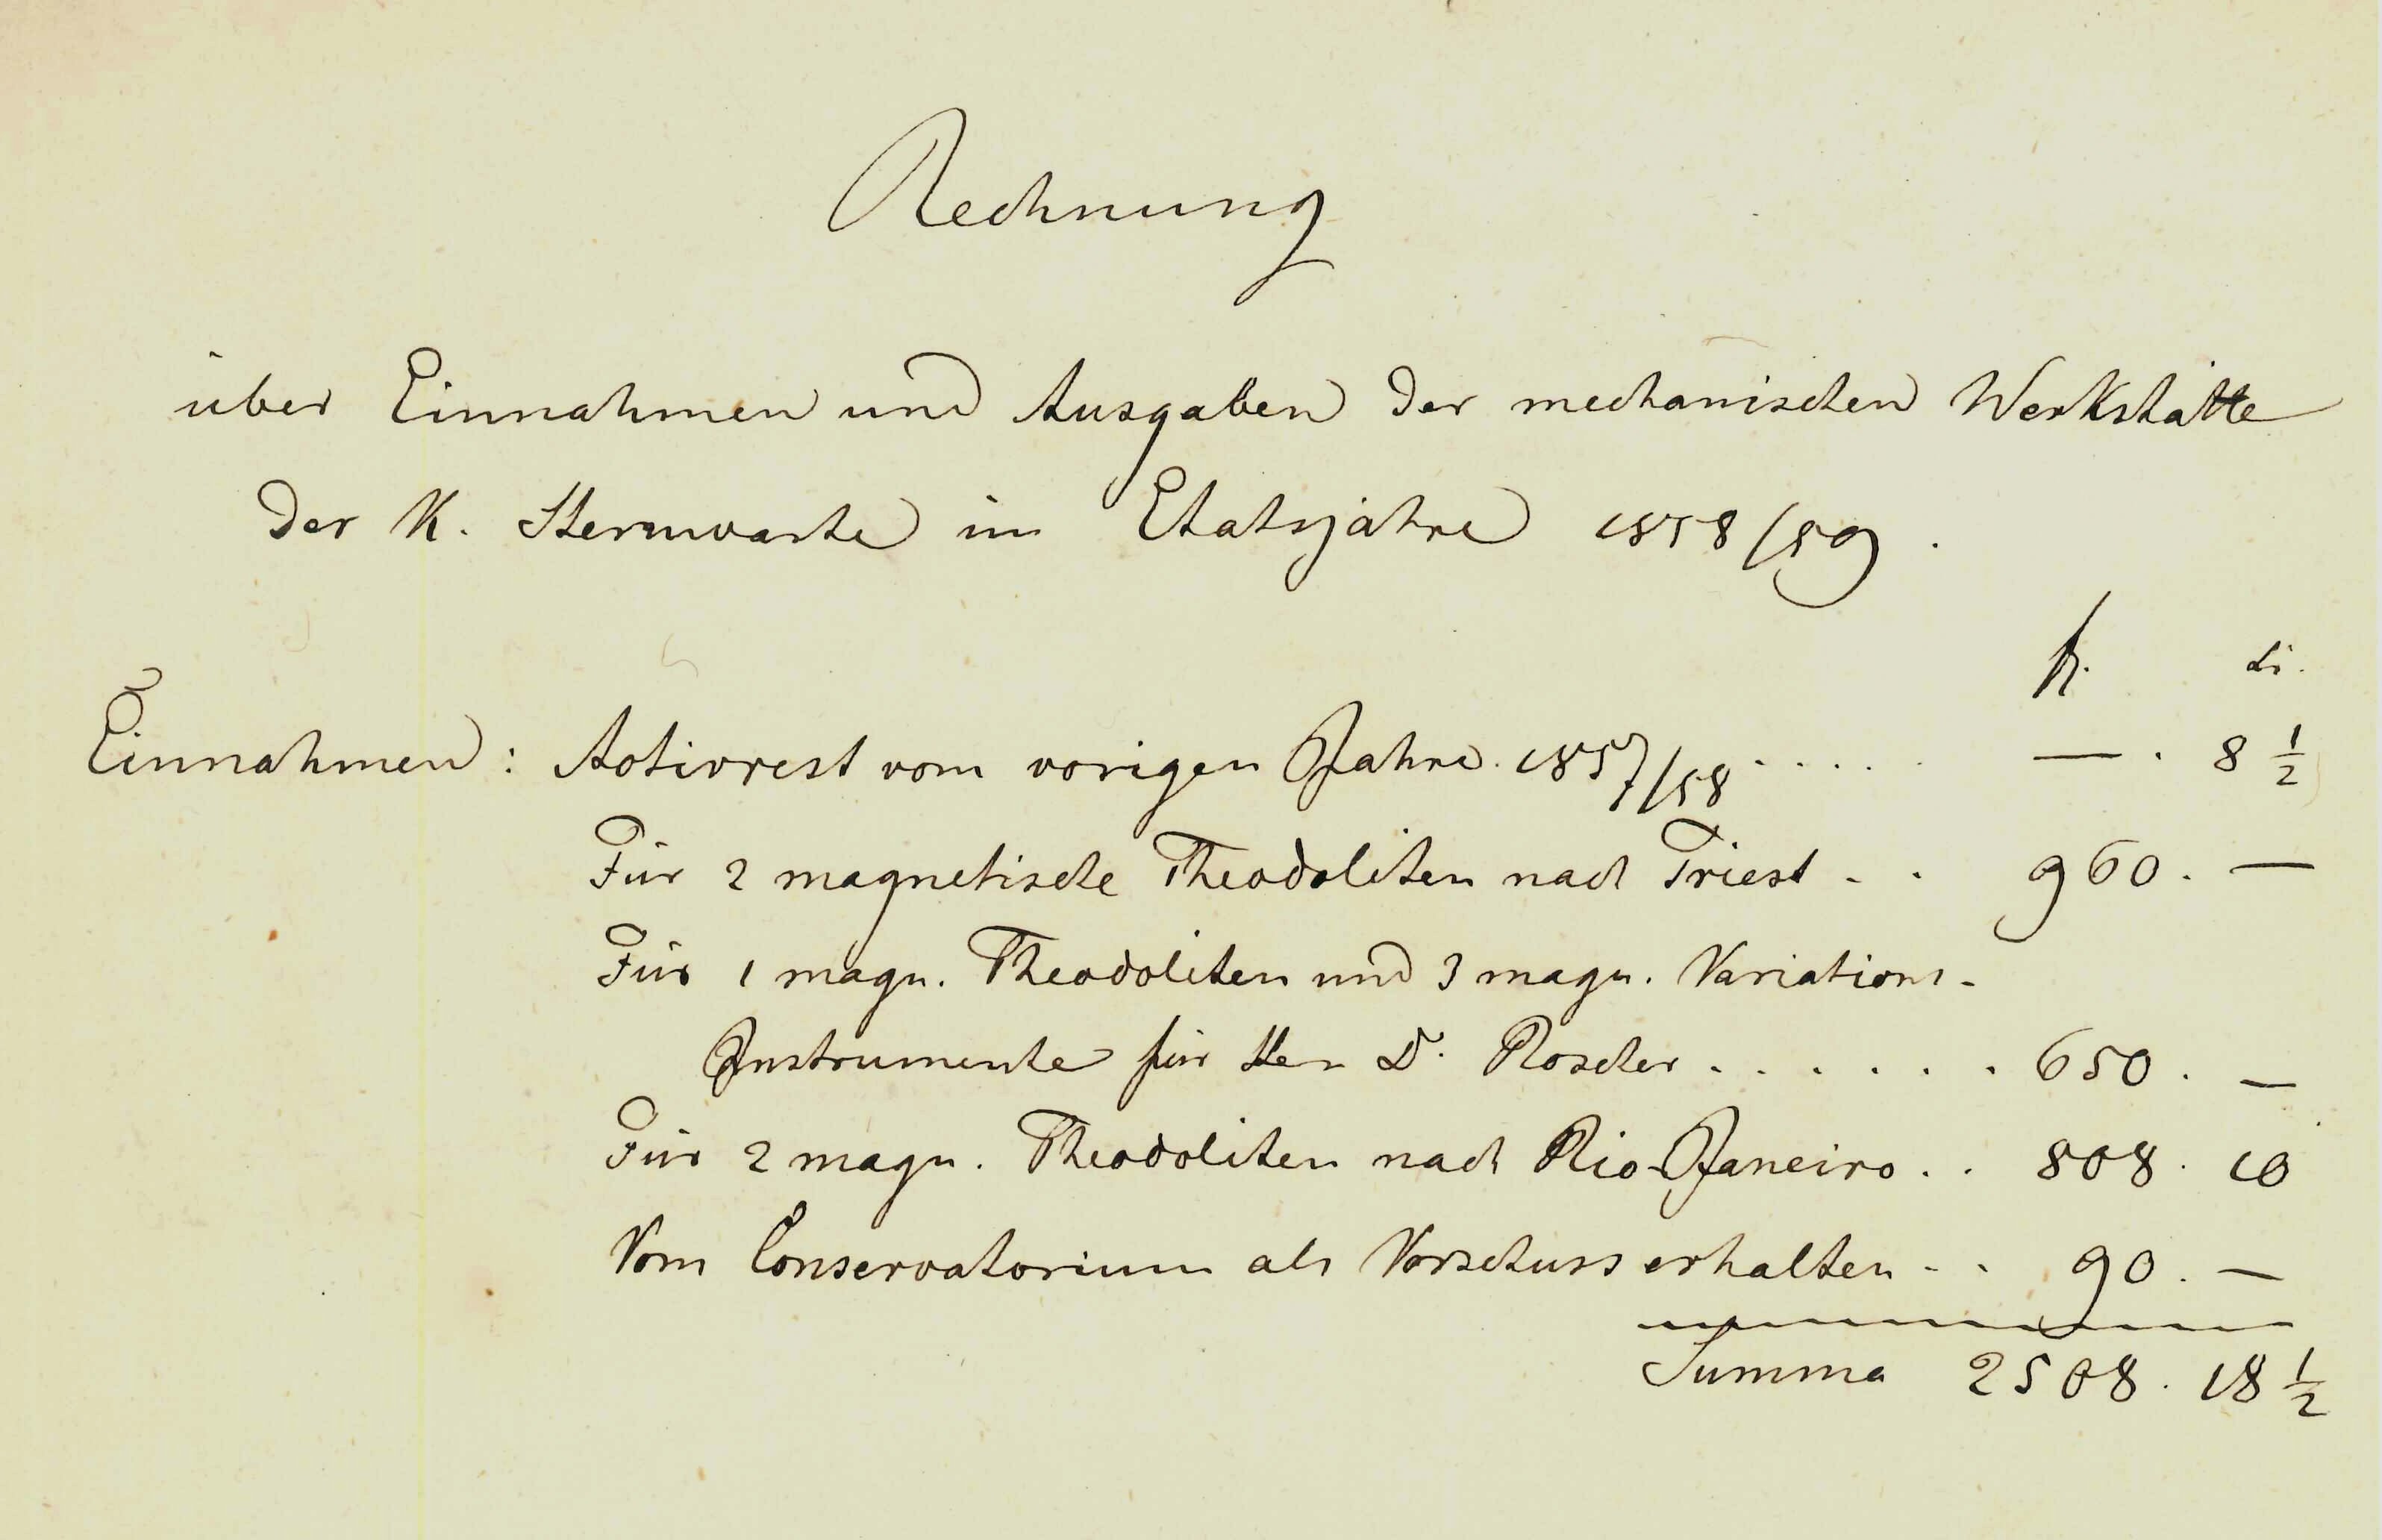 Rechnung
über Einnahmen und Ausgaben der mechanischen Werkstätte
der K. Sternwarte im Etatsjahre 1858/59.
fl. kr.
Einnahmen: Activrest vom vorigen Jahre 1857/58 . . . . . — . 8 1/2
Für 2 magnetische Theodoliten nach Triest . . 960 . —
Für 1 magn. Theodoliten und 3 magn. Variations-
Instrumente für Hrn Dr. Roscher . . . . . . . 650 . —
Für 2 magn. Theodoliten nach Rio-Janeiro . . 808 . 10
Vom Conservatorium als Vorschuss erhalten . . 90 . —
Summa 2508 . 18 1/2